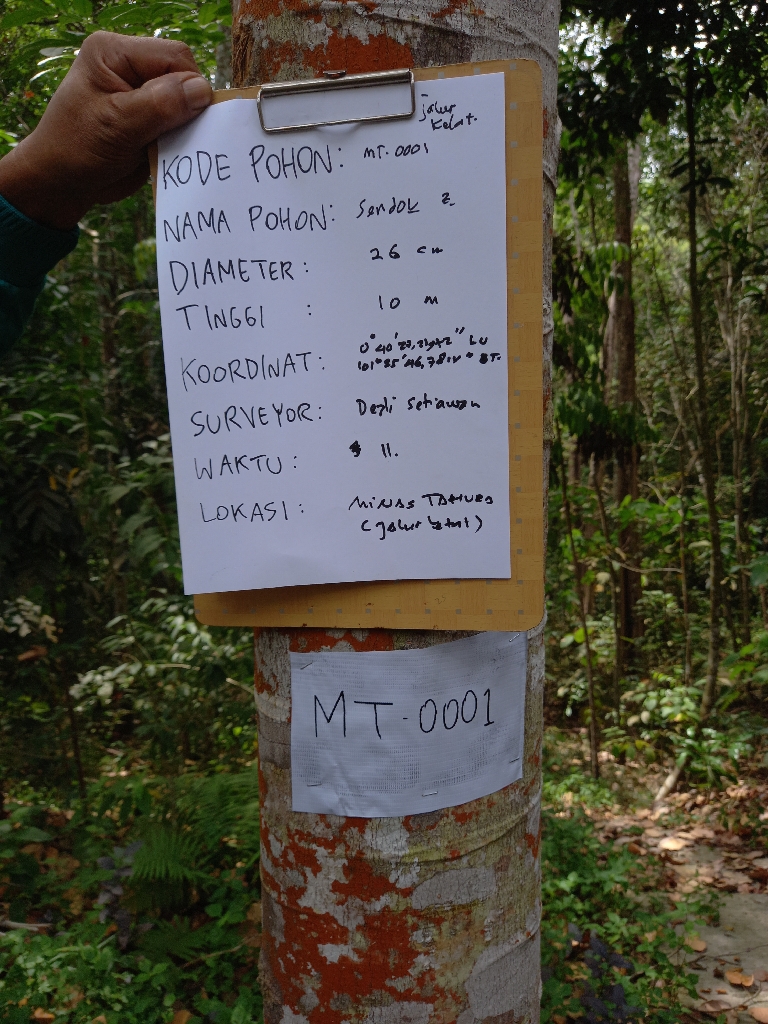 jalur
Kelat.
KODE POHON: MT.0001
NAMA POHON: Sendok 2
DIAMETER: 26 cm
TINGGI : 10 M
KOORDINAT: 0° 40' LU
101° 35' BT.
SURVEYOR: Desli Setiawan
WAKTU: 11.
LOKASI: MINAS TAHURA
(jalur)
MT-0001